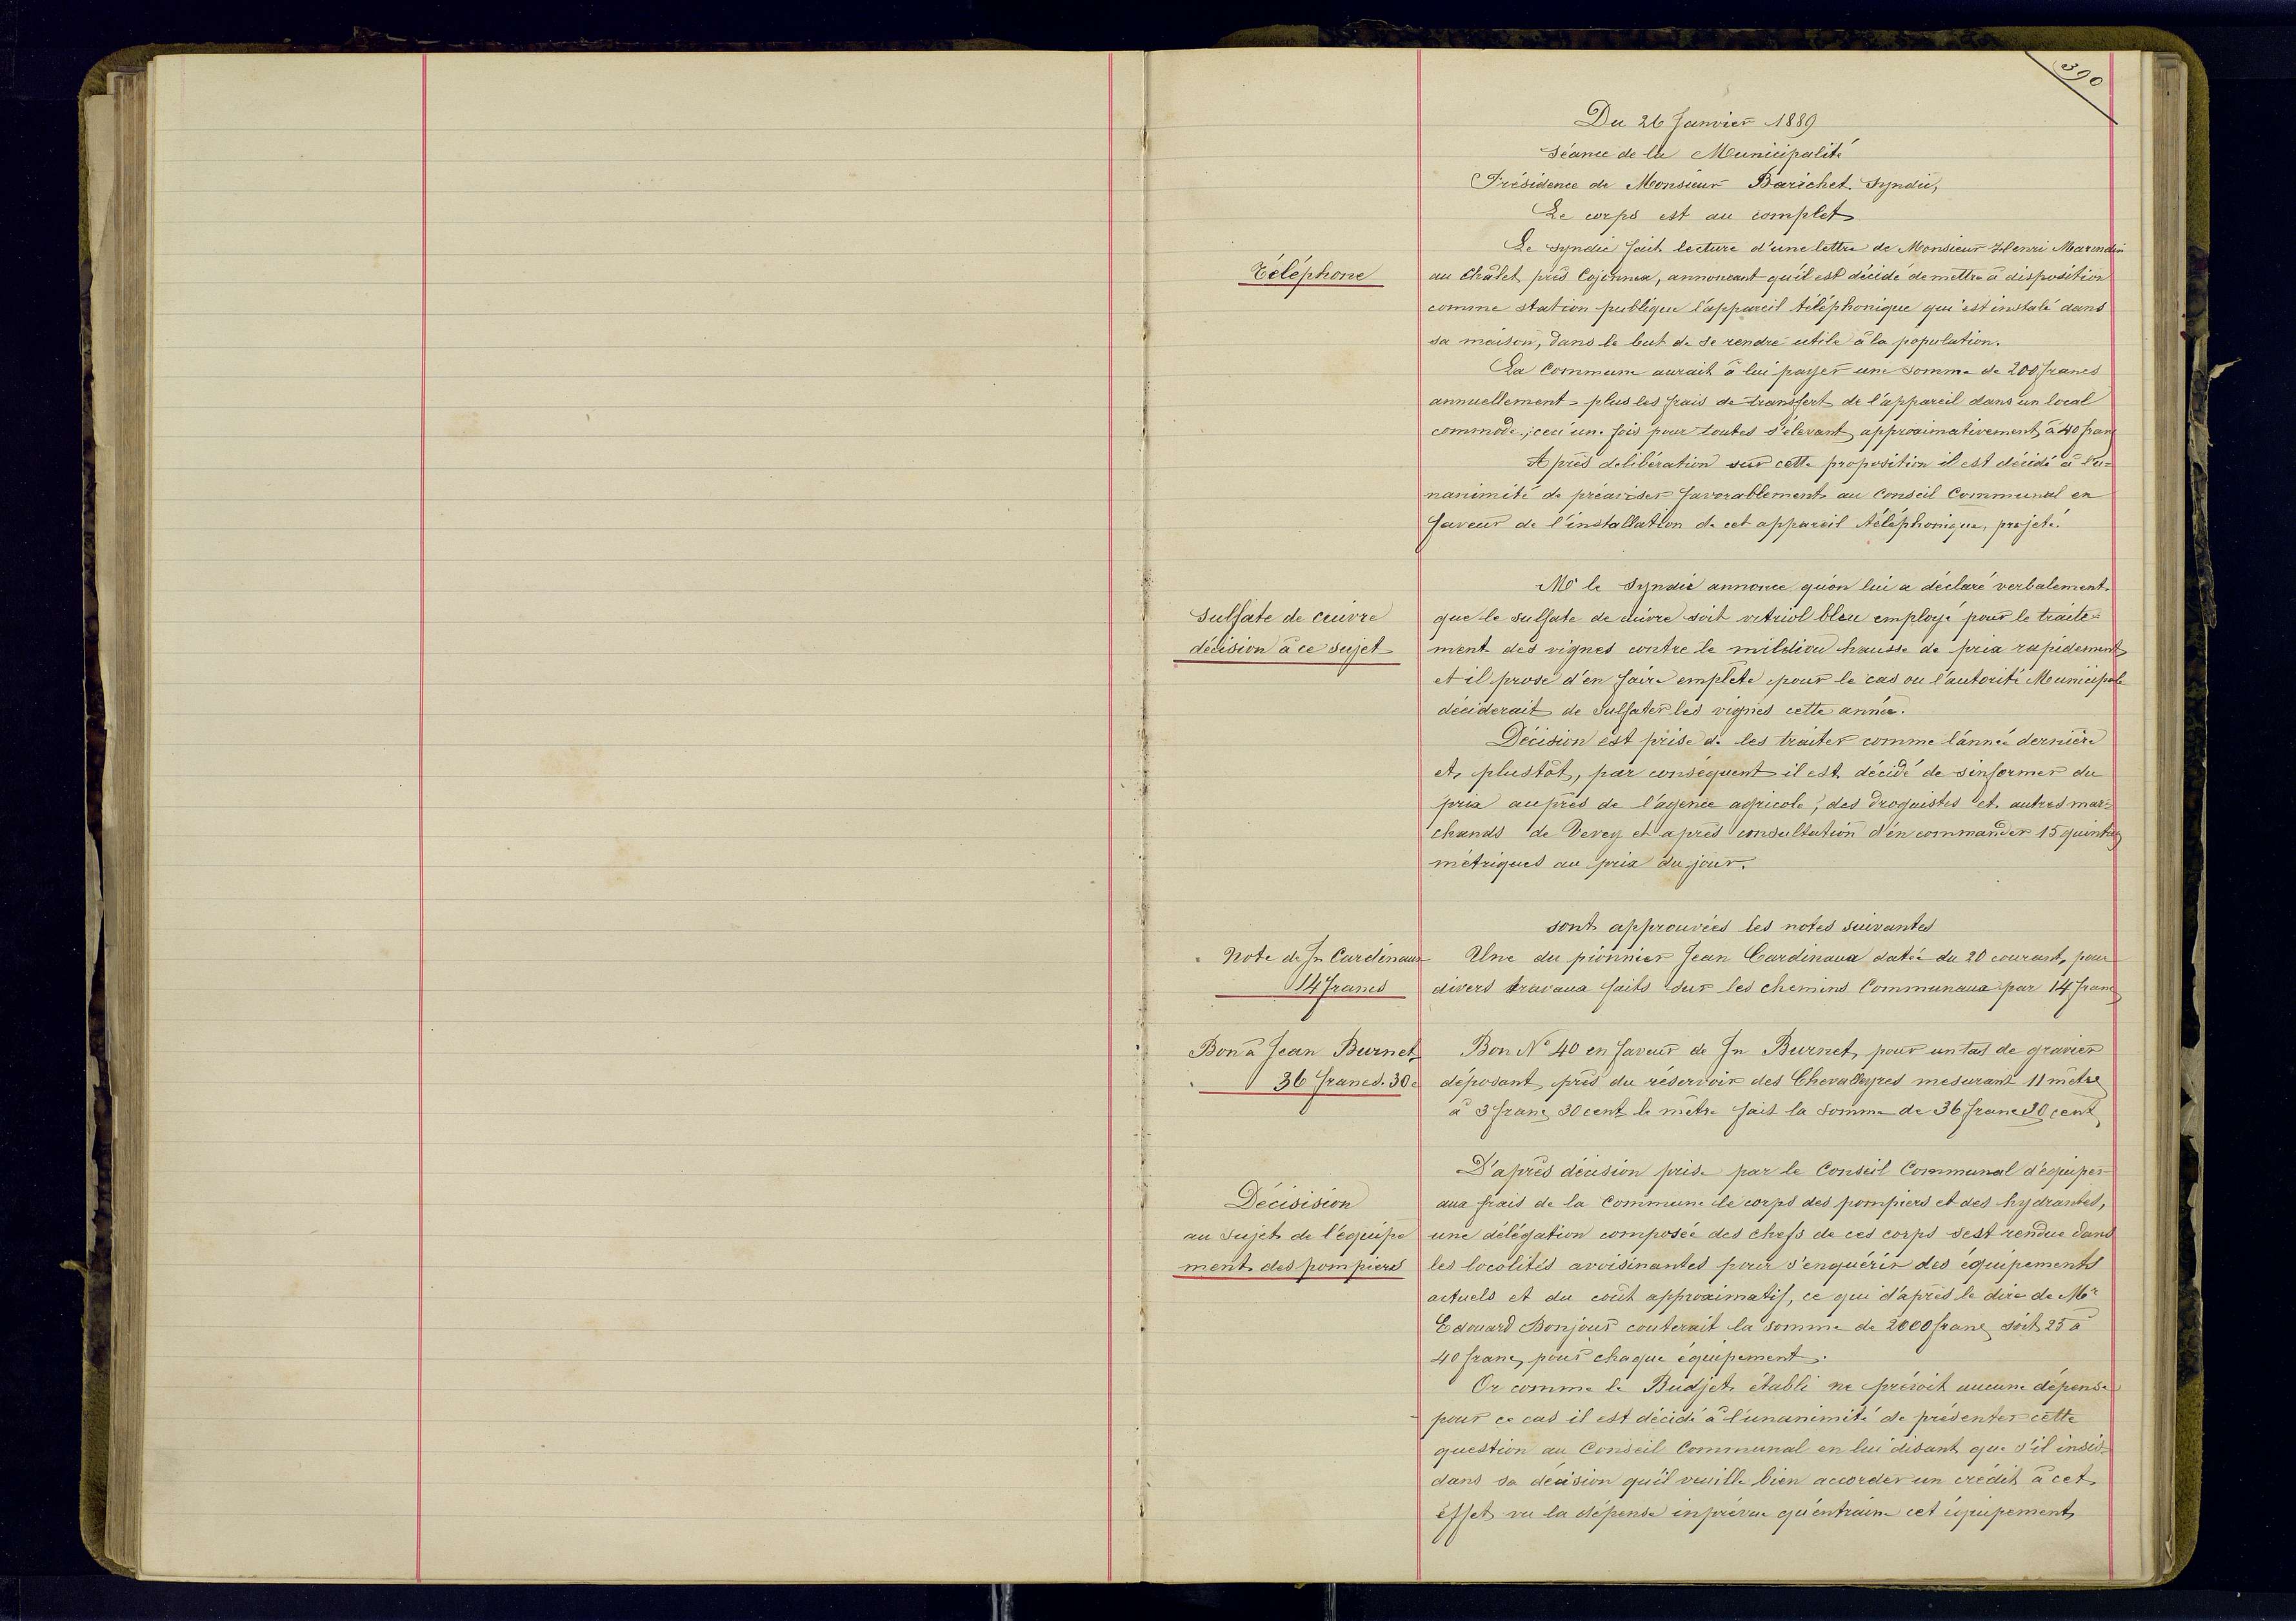 390
Du 26 Janvier 1889
Séance de la Municipalité
Présidence de Monsieur Barichet Syndic,
Le corps est au complet
Téléphone
Le Syndic fait lecture d'une lettre de Monsieur Henri Marindin
au Châlet près Cojonnex, annoncant qu'il est décidé de mettre à disposition
comme station publique l'appareil téléphonique qui est instalé dans
sa maison, dans le but de se rendre utile à la population.
La Commune aurait à lui payer une somme de 200 francs
annuellement - plus les frais de transfert de l'appareil dans un local
commode; ceci une fois pour toutes s'élevant approximativement à 40 franc
Après delibération sur cette proposition il est décidé à l'u=
nanimité de préaviser favorablement au Conseil Communal en
faveur de l'installation de cet appareil téléphonique, projeté.
Sulfate de ceuivre
décision à ce sujet
Mr le Syndic annonce qu'on lui a déclaré verbalement
que le sulfate de cuivre soit vitriol bleu employé pour le traite=
ment des vignes contre le mildiou hausse de prix rapidement
et il prose d'en faire emplête pour le cas ou l'autorité Municipale
déciderait de Sulfater les vignes cette année.
Décision est prise de les traiter comme l'année dernière
et plustôt, par conséquent il est décidé de s'informer du
prix auprès de l'agence agricole, des droguistes et autres mar=
chands de Vevey et après consultation d'en commander 15 quintaux
métriques au prix du jour.
sont approuvées les notes suivantes
Note de Jn Cardinaux
14 francs
Une du pionnier Jean Cardinaux datée du 20 courant, pour
divers travaux faits sur les chemins Communaux par 14 franc
Bon à Jean Burnet
36 francs. 30 c
Bon No 40 en faveur de Jn Burnet, pour un tas de gravier
déposant près du réservoir des Chevalleyres mesurant 11 mètre
à 3 franc 30 cent le mètre fait la somme de 36 franc 30 cent
Décisision
au sujet de l'équipe
ment des pompiers
D'après décision prise par le Conseil Communal d'équiper
aux frais de la Commune le corps des pompiers et des hydrantes,
une délégation composée des chefs de ces corps s'est rendue dans
les locolités avoisinantes pour s'enquérir des équipements
actuels et du coût approximatif, ce qui d'après le dire de Mr
Edouard Bonjour couterait la somme de 2000 franc soit 25 à
40 franc pour chaque équipement.
Or comme le Budjet établi ne prévoit aucune dépense
pour ce cas il est décidé à l'unanimité de présenter cette
question au Conseil Communal en lui disant que s'il insis
dans sa décision qu'il veuille bien accorder un crédit à cet
effet vu la dépense inprévue qu'entraine cet équipement